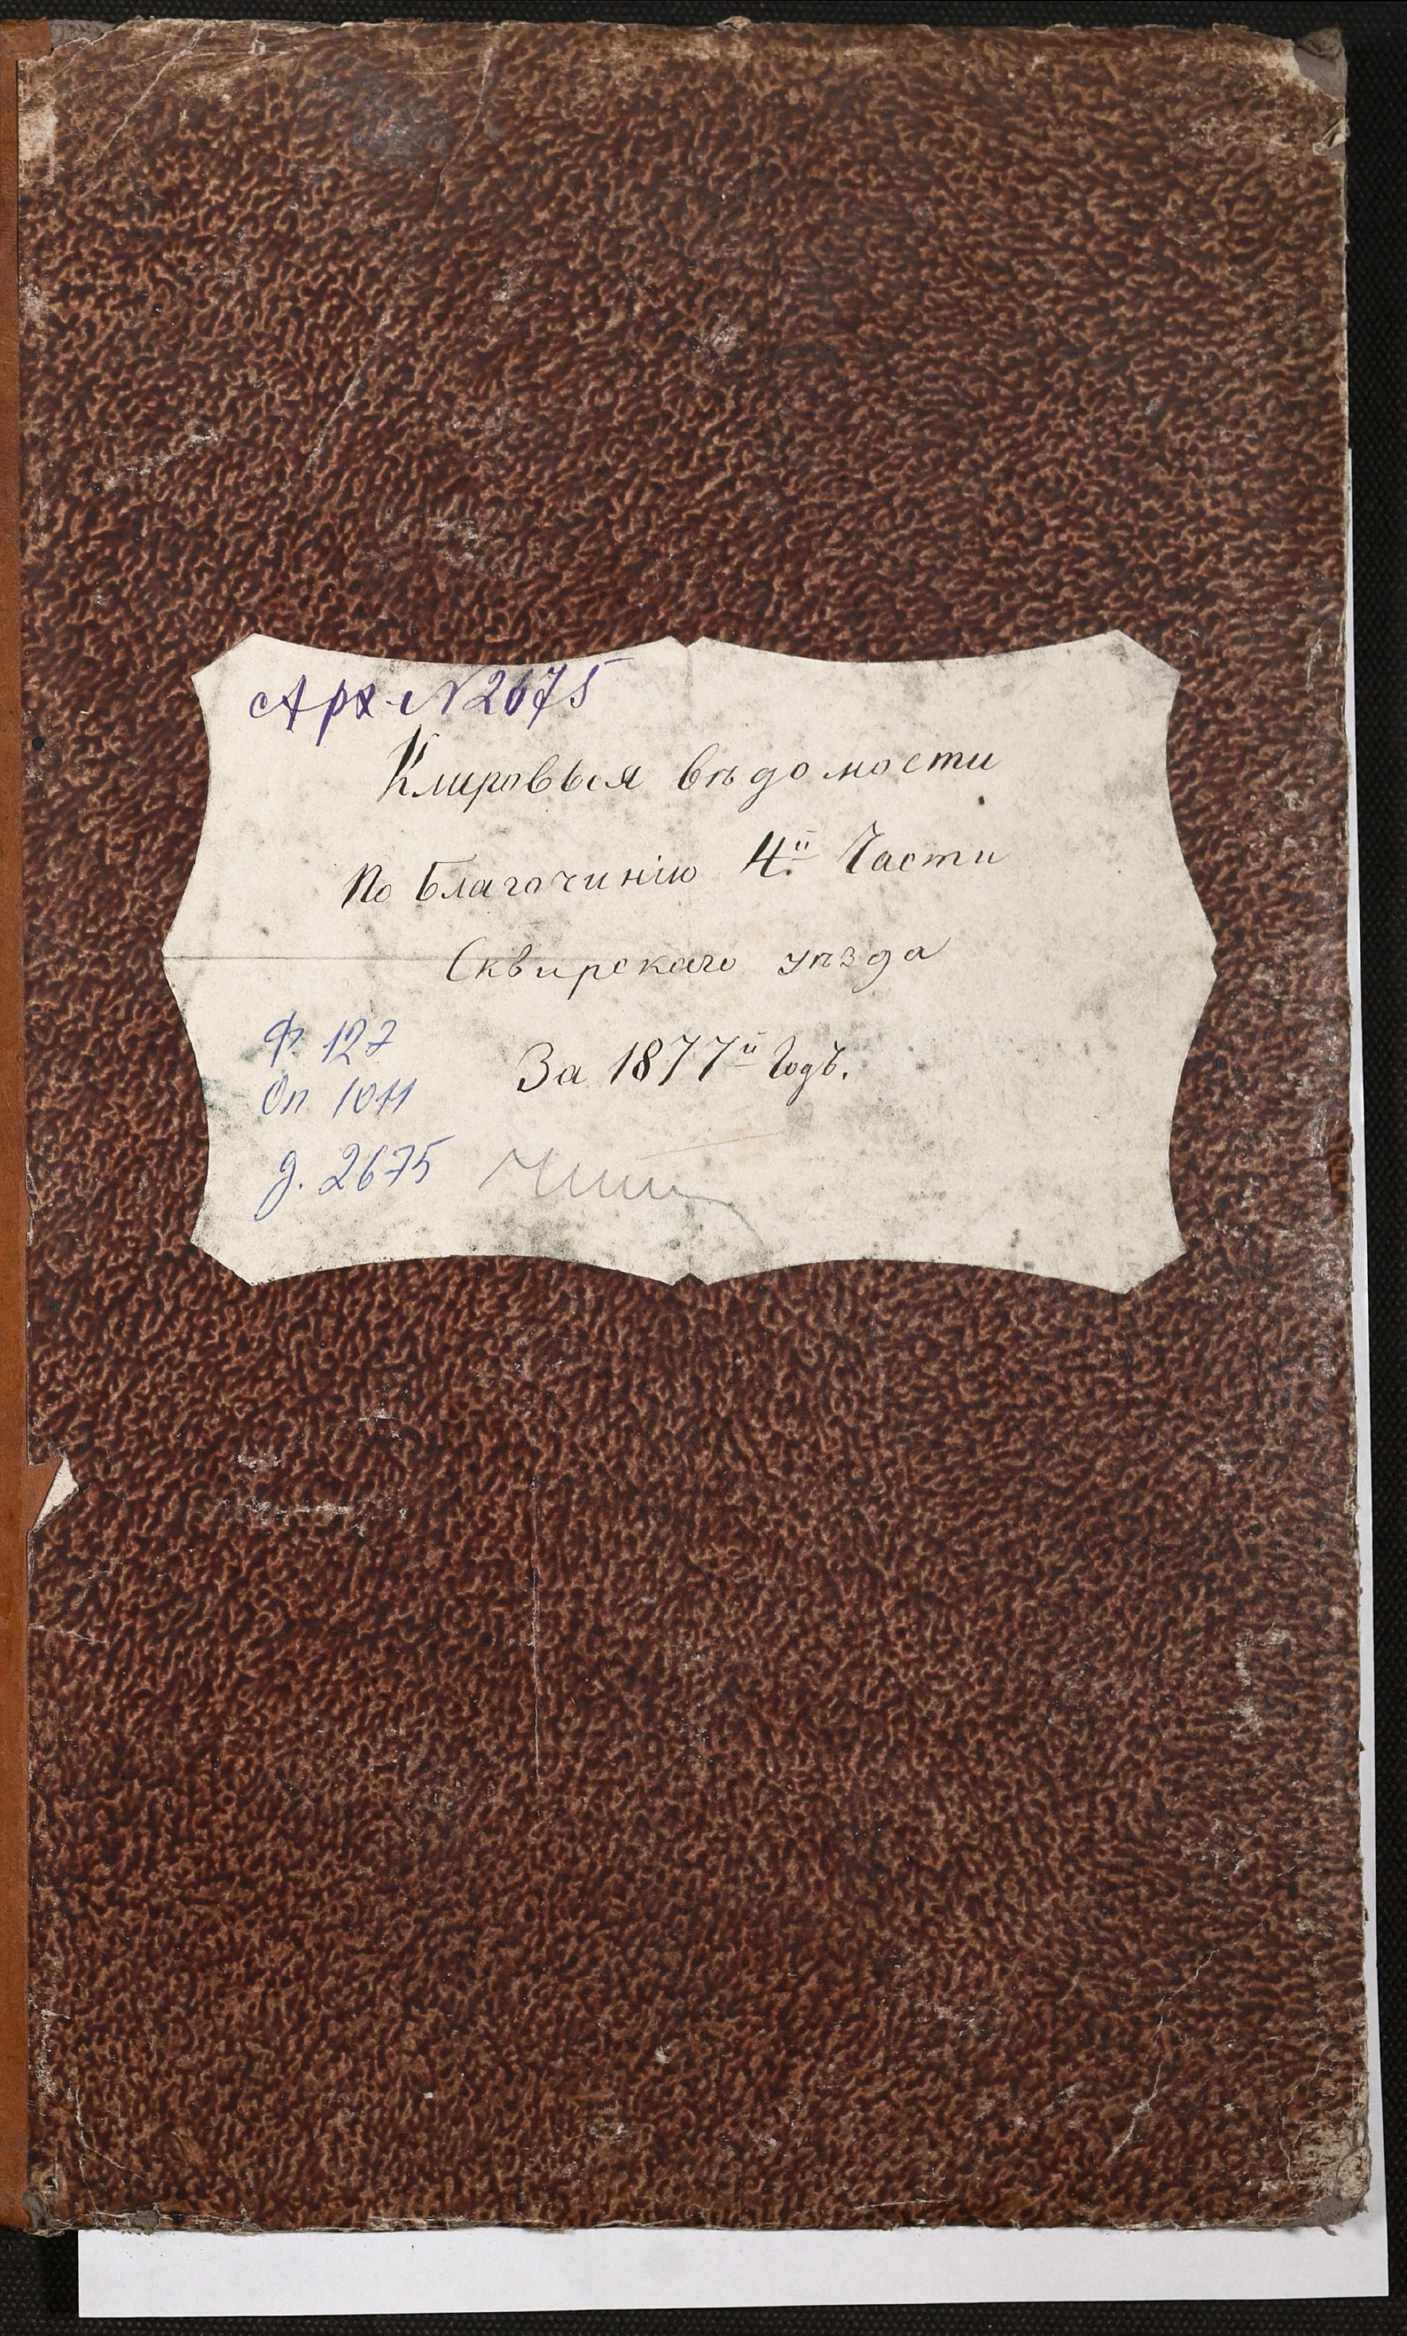 Арх. N 2675
Клировыя вѣдомости
По Благочинію 4й Части
Сквирскаго уѣзда
За 1877й Годъ.
Ф. 127
Оп 1011
д. 2675